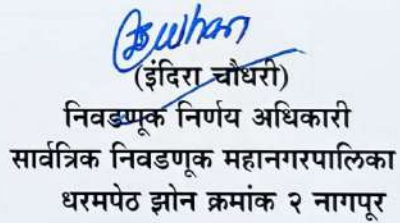 (इंदिरा चौधरी)
निवडणूक निर्णय अधिकारी
सार्वत्रिक निवडणूक महानगरपालिका
धरमपेठ झोन क्रमांक २ नागपूर